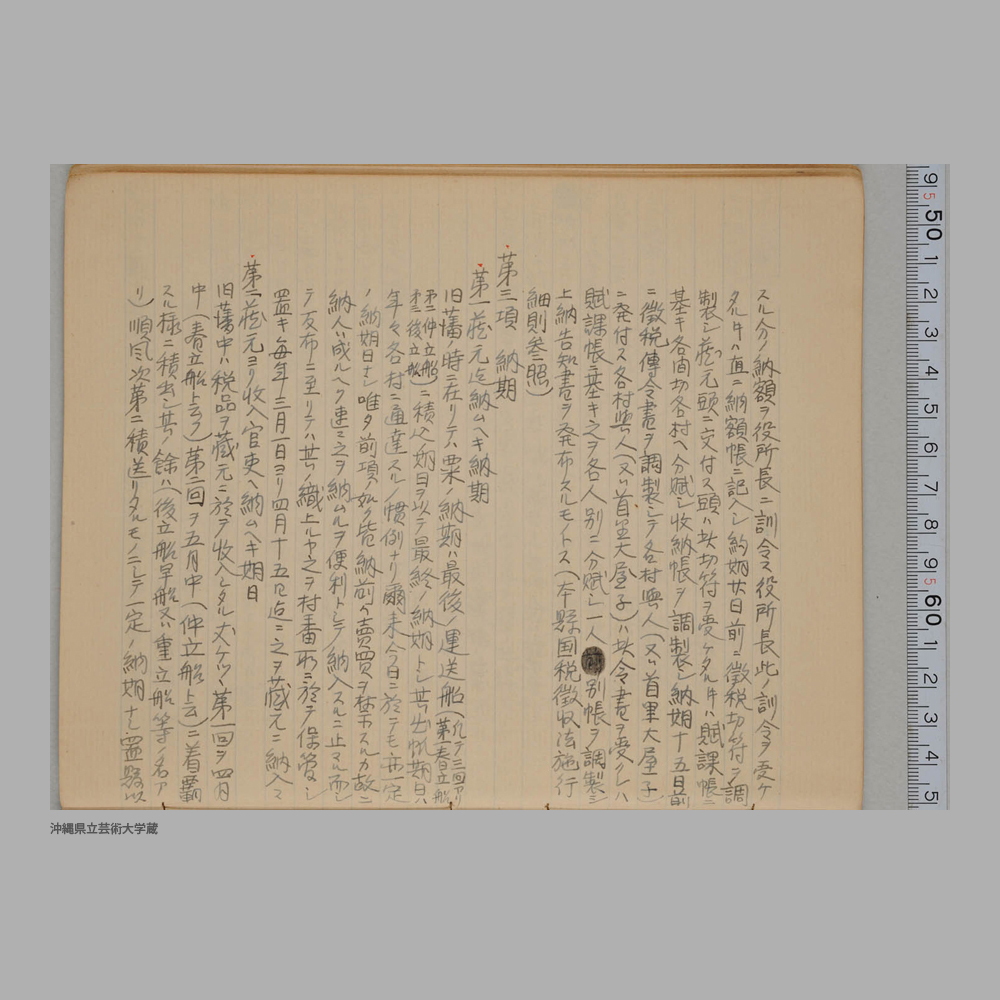 スル分ノ納額ヲ役所長ニ訓令ス役所長此ノ訓令ヲ受ケ
タル件ハ直ニ納額帳ニ記入シ納期廿日前ニ徴税切符ヲ調
製シ蔵元頭ニ交付ス頭ハ此切符ヲ受ケタル件ハ賦課帳ニ
基キ各間切各村ヘ分賦シ收納帳ヲ調製シ納期十五日前
ニ徴税傳令書ヲ調製シテ各村與人(又ハ首里大屋子)
ニ発付ス各村與人(又ハ首里大屋子)ハ此令書ヲ受クレハ
賦課帳ニ基キ之ヲ各人別ニ分賦シ一人別帳ヲ調製シ
上納告知書ヲ発布スルモノトス(本縣国税徴收法施行
細則参照)
第三項 納期
第一 蔵元迄納ムヘキ納期
旧藩ノ時ニ在リテハ粟ノ納期ハ最後ノ運送船(凡テ三回アリ第一春立船
第二仲立船第三後立船)ニ積込ノ期日ヲ以テ最終ノ納期トシ其出帆期日ハ
年々各村ニ通達スルノ慣例ナリ爾来今日ニ於テモ亦一定
ノ納期日ナシ唯タ前項ノ如ク皆納前ハ賣買ヲ禁スルカ故ニ
納人ハ成ルヘク速ニ之ヲ納ムルヲ便利トシテ納入スルニ止マル而シ
テ反布ニ至リテハ其ノ織上ルヤ之ヲ村番所ニ於テ保管シ
置キ毎年三月一日ヨリ四月十五日迄ニ之ヲ蔵元ニ納入ス
第二 蔵元ヨリ收入官吏ヘ納ムヘキ期日
旧藩中ハ税品ヲ蔵元ニ於テ收入シタル丈ケツヽ第一回ヲ四月
中(春立船ト云フ)第二回ヲ五月中(仲立船ト云)ニ着覇
スル様ニ積出シ其ノ餘ハ(後立船早船又ハ重立船等ノ名ア
リ)順風次第ニ積送リタルモノニシテ一定ノ納期ナシ置縣以
9 50 1 2 3 4 5 6 7 8 9 60 1 2 3 4 5
沖縄県立芸術大学蔵